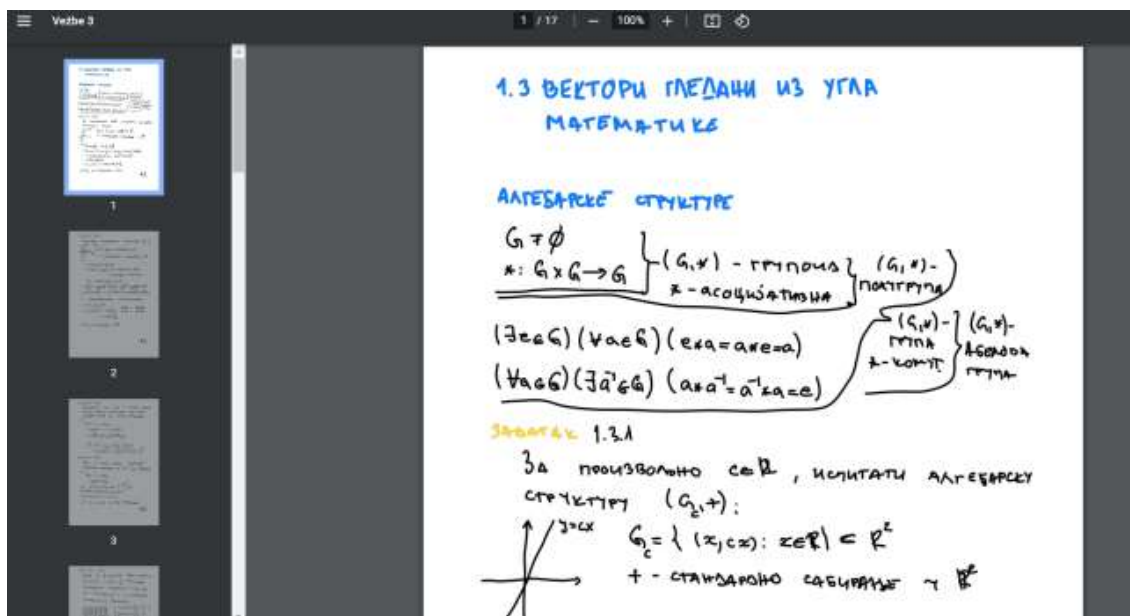 Vežbe 3
1 / 17 − 100% +
1.3 ВЕКТОРИ ГЛЕДАНИ ИЗ УГЛА
МАТЕМАТИКЕ
АЛГЕБАРСКЕ СТРУКТУРЕ
G ≠ ∅
*: G × G → G
(G,*) - ГРУПОИД
* - АСОЦИЈАТИВНА
(G,*) -
ПОЛУГРУПА
(∃e∈G)(∀a∈G)(e*a=a*e=a)
(∀a∈G)(∃a⁻¹∈G)(a*a⁻¹=a⁻¹*a=e)
(G,*) -
ГРУПА
* - КОМУТ
(G,*) -
АБЕЛОВА
ГРУПА
ЗАДАТАК 1.3.1
ЗА ПРОИЗВОЉНО c∈ℝ, ИСПИТАТИ АЛГЕБАРСКУ
СТРУКТУРУ (G_c,+):
y=cx
G_c = { (x,cx): x∈ℝ} ⊂ ℝ²
+ - СТАНДАРДНО САБИРАЊЕ У ℝ²
1
2
3